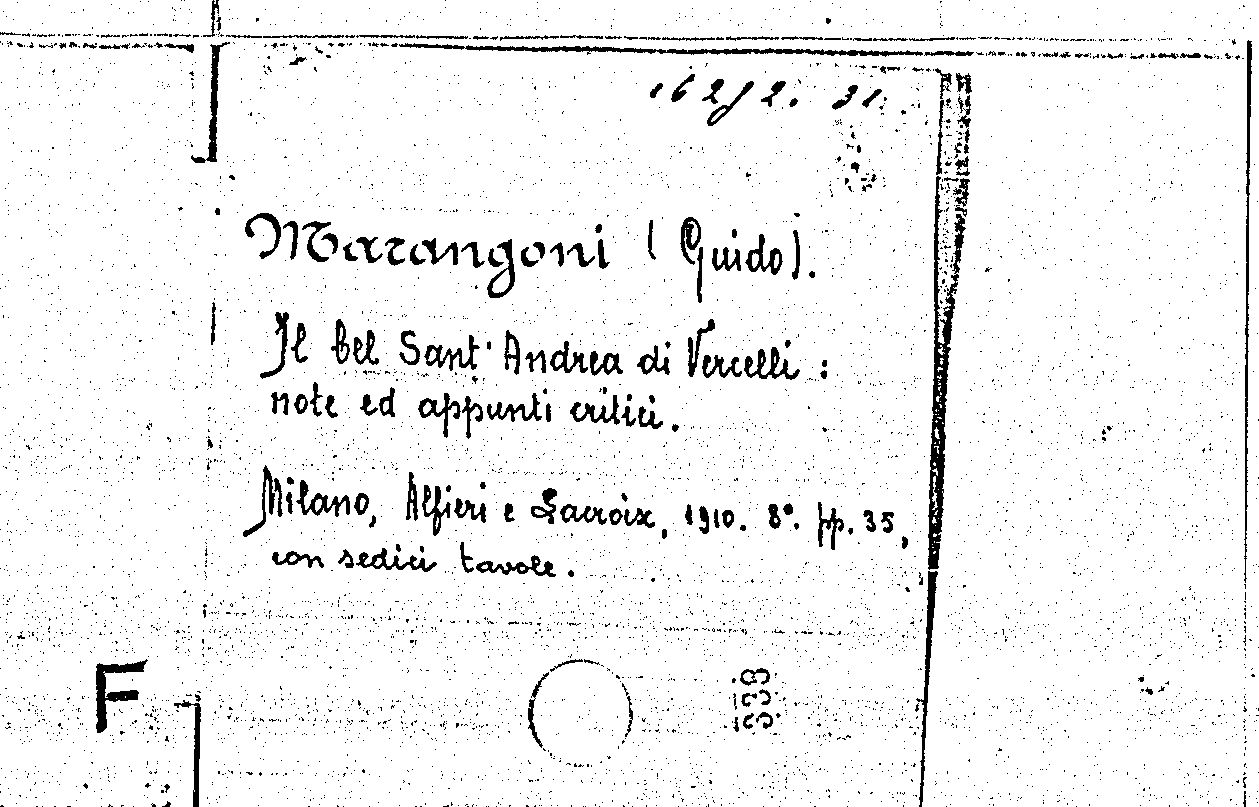 162J2. 31.
Marangoni (Guido).
Il bel Sant'Andrea di Vercelli :
note ed appunti critici.
Milano, Alfieri e Lacroix, 1910. 8°. pp. 35,
con sedici tavole.
F